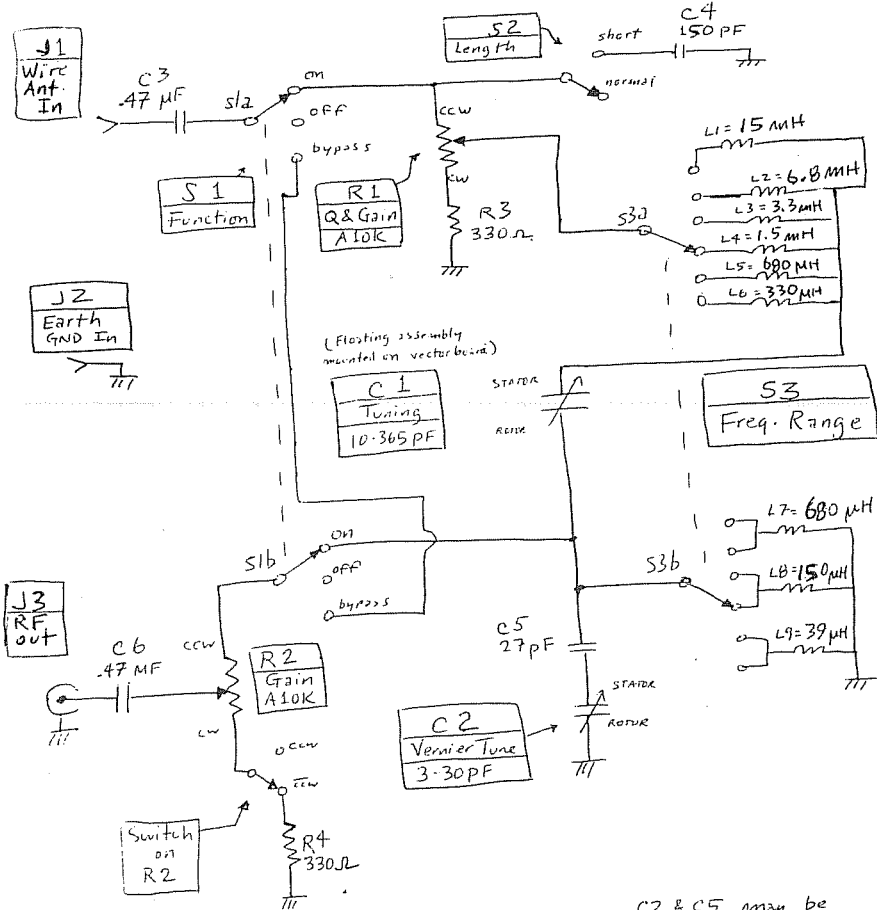 J1
Wire
Ant.
In
C3
.47 µF
S1a
on
off
bypass
S2
Length
short
C4
150 PF
normal
S1
Function
ccw
cw
R1
Q & Gain
A10K
R3
330Ω
S3a
L1 = 15 mH
L2 = 6.8 mH
L3 = 3.3 mH
L4 = 1.5 mH
L5 = 680 µH
L6 = 330 µH
J2
Earth
GND In
(Floating assembly
mounted on vector board)
C1
Tuning
10-365 PF
STATOR
ROTOR
S3
Freq. Range
S1b
on
off
bypass
S3b
L7 = 680 µH
L8 = 150 µH
L9 = 39 µH
J3
RF
out
C6
.47 MF
ccw
cw
R2
Gain
A10K
C5
27 pF
STATOR
ROTOR
C2
Vernier Tune
3-30 PF
ccw
c̅c̅w̅
Switch
on
R2
R4
330Ω
C2 & C5 may be